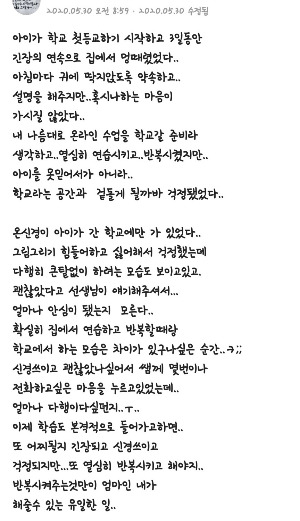 2020.05.30 오전 8:59 · 2020.05.30 수정됨
아이가 학교 첫등교하기 시작하고 3일동안
긴장의 연속으로 집에서 멍때렸었다..
아침마다 귀에 딱지앉도록 약속하고..
설명을 해주지만..혹시나하는 마음이
가시질 않았다..
내 나름대로 온라인 수업을 학교갈 준비라
생각하고..열심히 연습시키고..반복시켰지만..
아이를 못믿어서가 아니라..
학교라는 공간과 겉돌게 될까바 걱정됐었다..
온신경이 아이가 간 학교에만 가 있었다..
그림그리기 힘들어하고 싫어해서 걱정했는데
다행히 큰탈없이 하려는 모습도 보이고있고.
괜찮았다고 선생님이 얘기해주셔서...
얼마나 안심이 됐는지 모른다..
확실히 집에서 연습하고 반복할때랑
학교에서 하는 모습은 차이가 있구나싶은 순간..ㅋ;;
신경쓰이고 괜찮았나싶어서 쌤께 몇번이나
전화하고싶은 마음을 누르고있었는데..
얼마나 다행이다싶던지..ㅜ..
이제 학습도 본격적으로 들어가고하면..
또 어찌될지 긴장되고 신경쓰이고
걱정되지만...또 열심히 반복시키고 해야지..
반복시켜주는것만이 엄마인 내가
해줄수 있는 유일한 일..